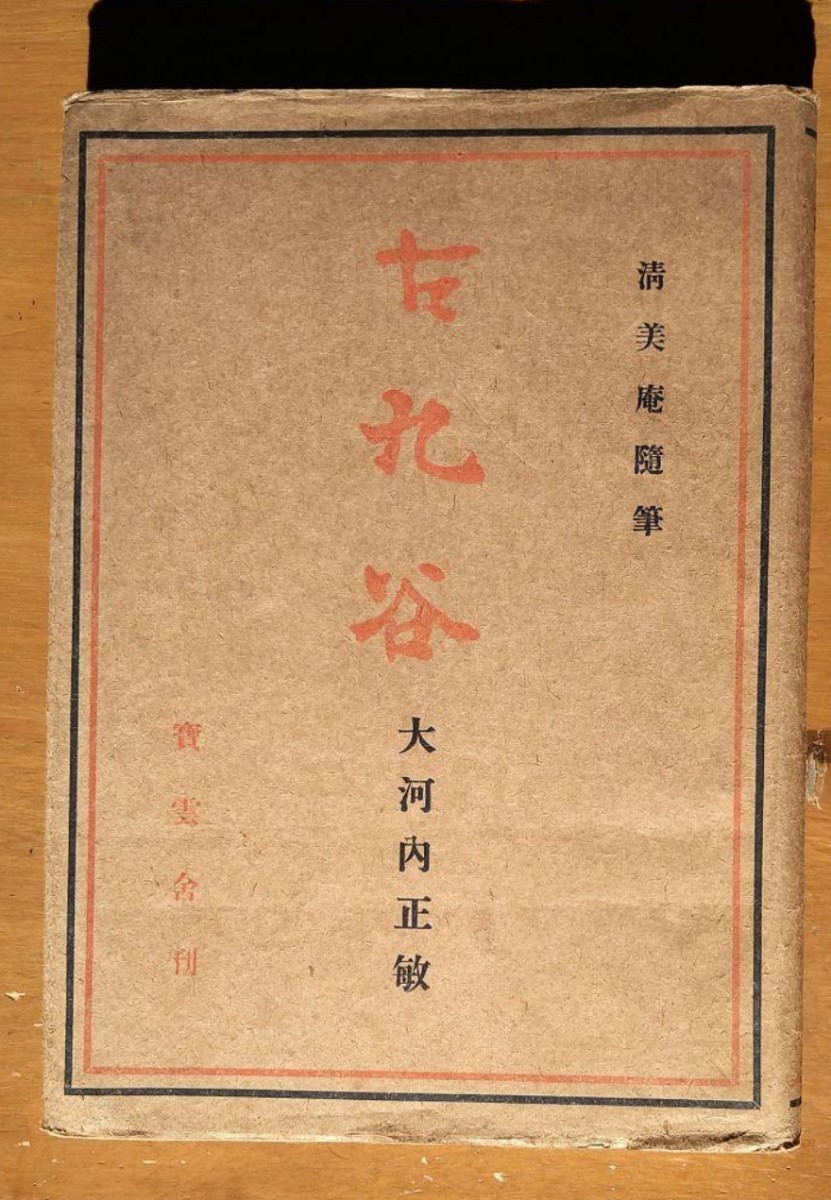 清美庵隨筆
古九谷
大河內正敏
寶雲舍刊